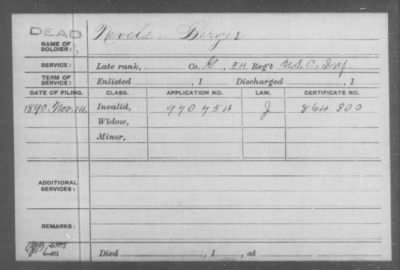 DEAD
NAME OF SOLDIER: Berger
SERVICE: Late rank, Co. G, Reg't U.S.C. Inf.
TERM OF SERVICE: Enlisted , 1 Discharged , 1
DATE OF FILING. CLASS. APPLICATION NO. LAW. CERTIFICATE NO.
1890. Nov. 14. Invalid, 970751 J 864 300
Widow,
Minor,
ADDITIONAL SERVICES:
REMARKS:
Died , 1 , at